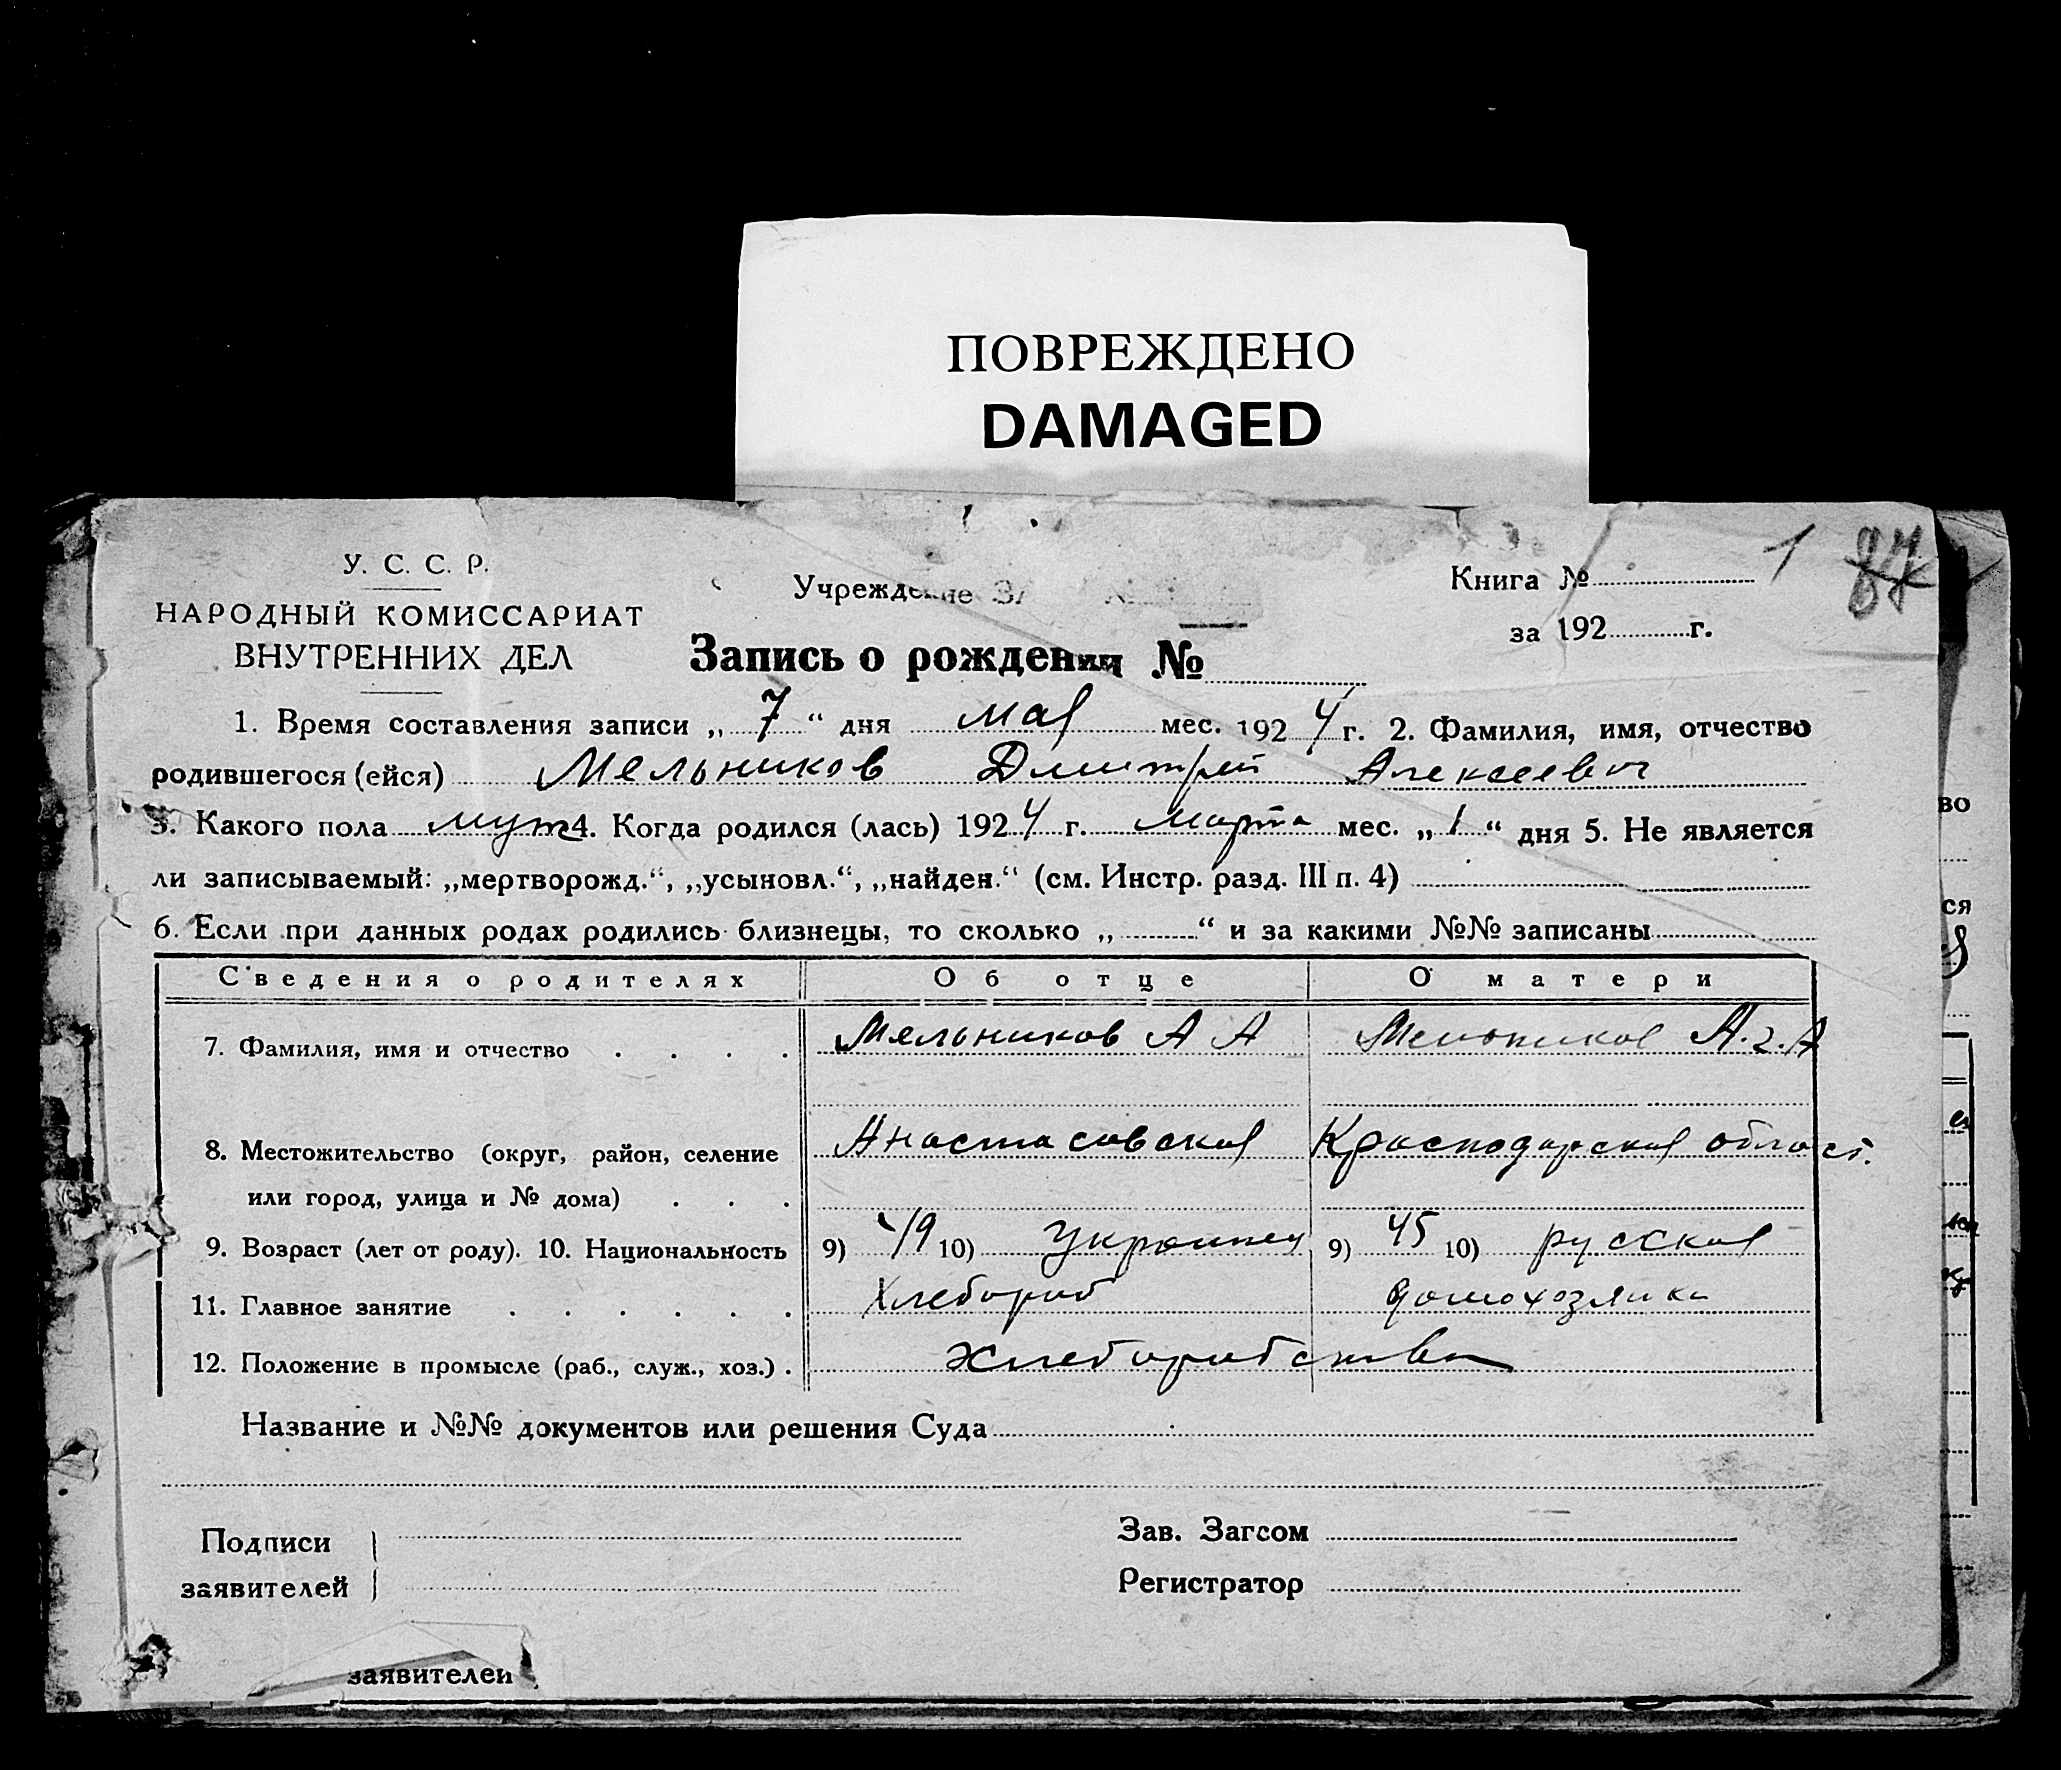 ПОВРЕЖДЕНО
DAMAGED
У. С. С. Р.
НАРОДНЫЙ КОМИССАРИАТ
ВНУТРЕННИХ ДЕЛ
Учреждение
Книга № 1 87
за 192 г.
Запись о рождении №
1. Время составления записи „ 7 “ дня мая мес. 1924 г. 2. Фамилия, имя, отчество
родившегося (ейся) Мельников Дмитрий Алексеевич
3. Какого пола муж 4. Когда родился (лась) 1924 г. Марта мес. „ 1 “ дня 5. Не является
ли записываемый: „мертворожд.“, „усыновл.“, „найден.“ (см. Инстр. разд. III п. 4)
6. Если при данных родах родились близнецы, то сколько „ “ и за какими №№ записаны
Сведения о родителях Об отце О матери
7. Фамилия, имя и отчество Мельников А А
8. Местожительство (округ, район, селение Анастасовская Краснодарская област.
или город, улица и № дома)
9. Возраст (лет от роду). 10. Национальность 9) 49 10) Украинец 9) 45 10) русская
11. Главное занятие Хлебороб домохозяйка
12. Положение в промысле (раб., служ., хоз.) Хлеборобство
Название и №№ документов или решения Суда
Подписи
заявителей
Зав. Загсом
Регистратор
заявителей